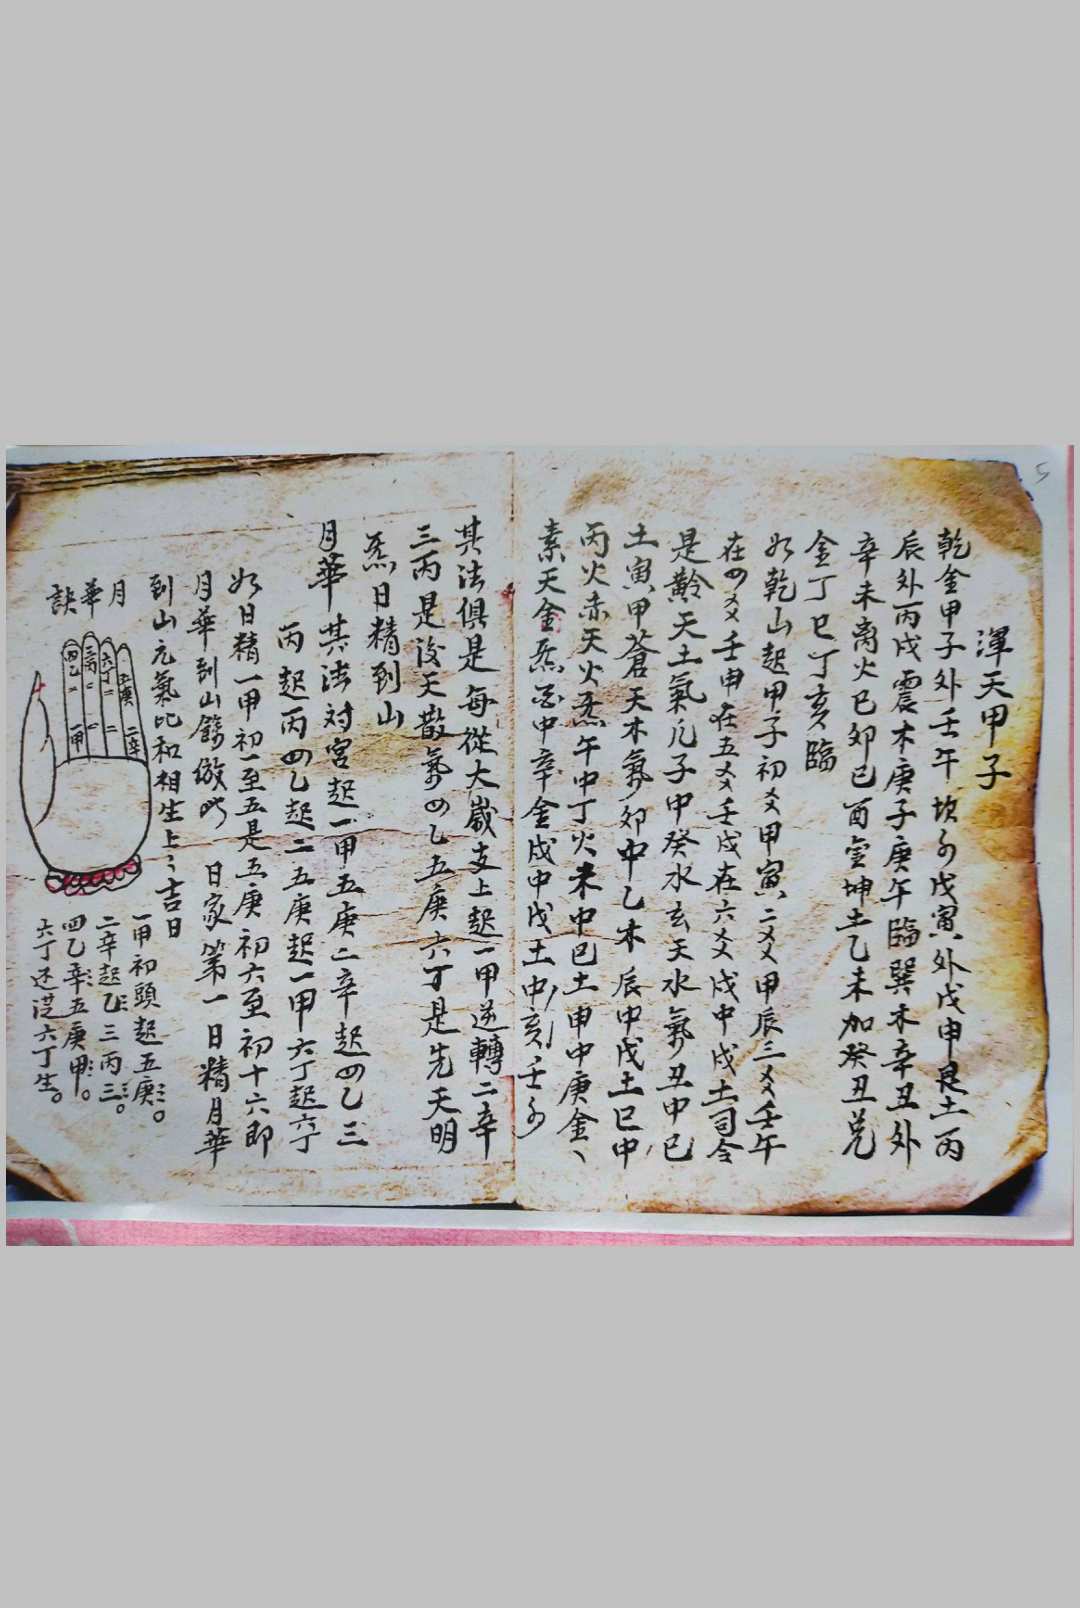 5
渾天甲子
乾金甲子外壬午坎水戊寅外戊申艮土丙
辰外丙戌震木庚子庚午臨巽木辛丑外
辛未离火已卯已酉坤土乙未加癸丑兌
金丁巳丁亥臨
如乾山起甲子初爻甲寅二爻甲辰三爻壬午
在四爻壬申在五爻壬戌在六爻戊中戌土司令
是黅天土氣凡子中癸水玄天水氣丑中巳
土寅甲蒼天木氣卯中乙木辰中戊土巳中
丙火赤天火炁午中丁火未中巳土申中庚金、
素天金炁酉中辛金戌中戊土中亥壬水
其法俱是每從大歲支上起一甲逆轉二辛
三丙是後天散氣四乙五庚六丁是先天明
炁日精到山
月華其法対宮起一甲五庚二辛起四乙三
丙起丙四乙起二五庚起一甲六丁起六丁
如日精一甲初一至五是五庚初六至初十六即
月華到山餘倣此 日家第一日精月華
到山元氣比和相生上〻吉日
月華訣
四乙
三丙
六丁
五庚
一甲
二辛
一甲初頭起五庚。
二辛起乙三丙三。
四乙辛五庚甲。
六丁还從六丁生。